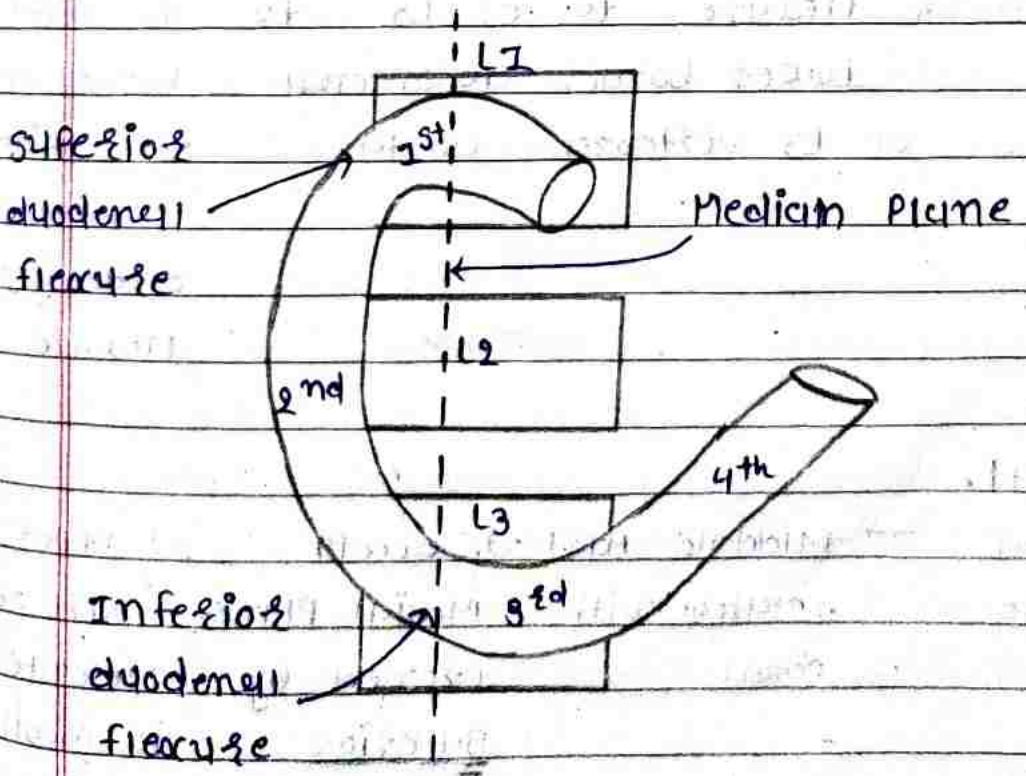 L1
superior
duodenal
flexure
1st
Median Plane
L2
2nd
4th
L3
3rd
Inferior
duodenal
flexure